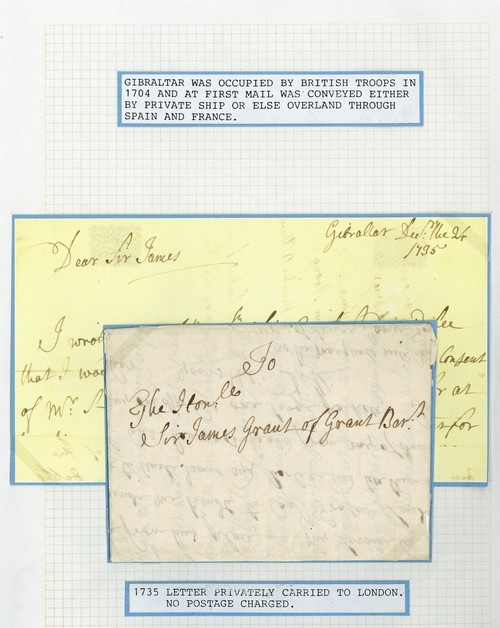 GIBRALTAR WAS OCCUPIED BY BRITISH TROOPS IN
1704 AND AT FIRST MAIL WAS CONVEYED EITHER
BY PRIVATE SHIP OR ELSE OVERLAND THROUGH
SPAIN AND FRANCE.
Gibraltar Decr. the 24
1735
Dear Sir James
I wrot
that I wa
Consent
of Mr. St
at
for
To
The Honble
Sir James Grant of Grant Bart.
1735 LETTER PRIVATELY CARRIED TO LONDON.
NO POSTAGE CHARGED.